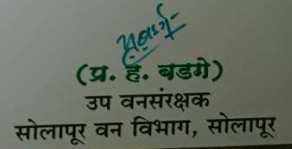 (प्र. ह. बडगे)
उप वनसंरक्षक
सोलापूर वन विभाग, सोलापूर